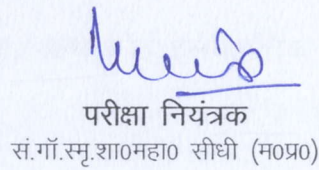 परीक्षा नियंत्रक
सं.गॉ.स्मृ.शा0महा0 सीधी (म0प्र0)